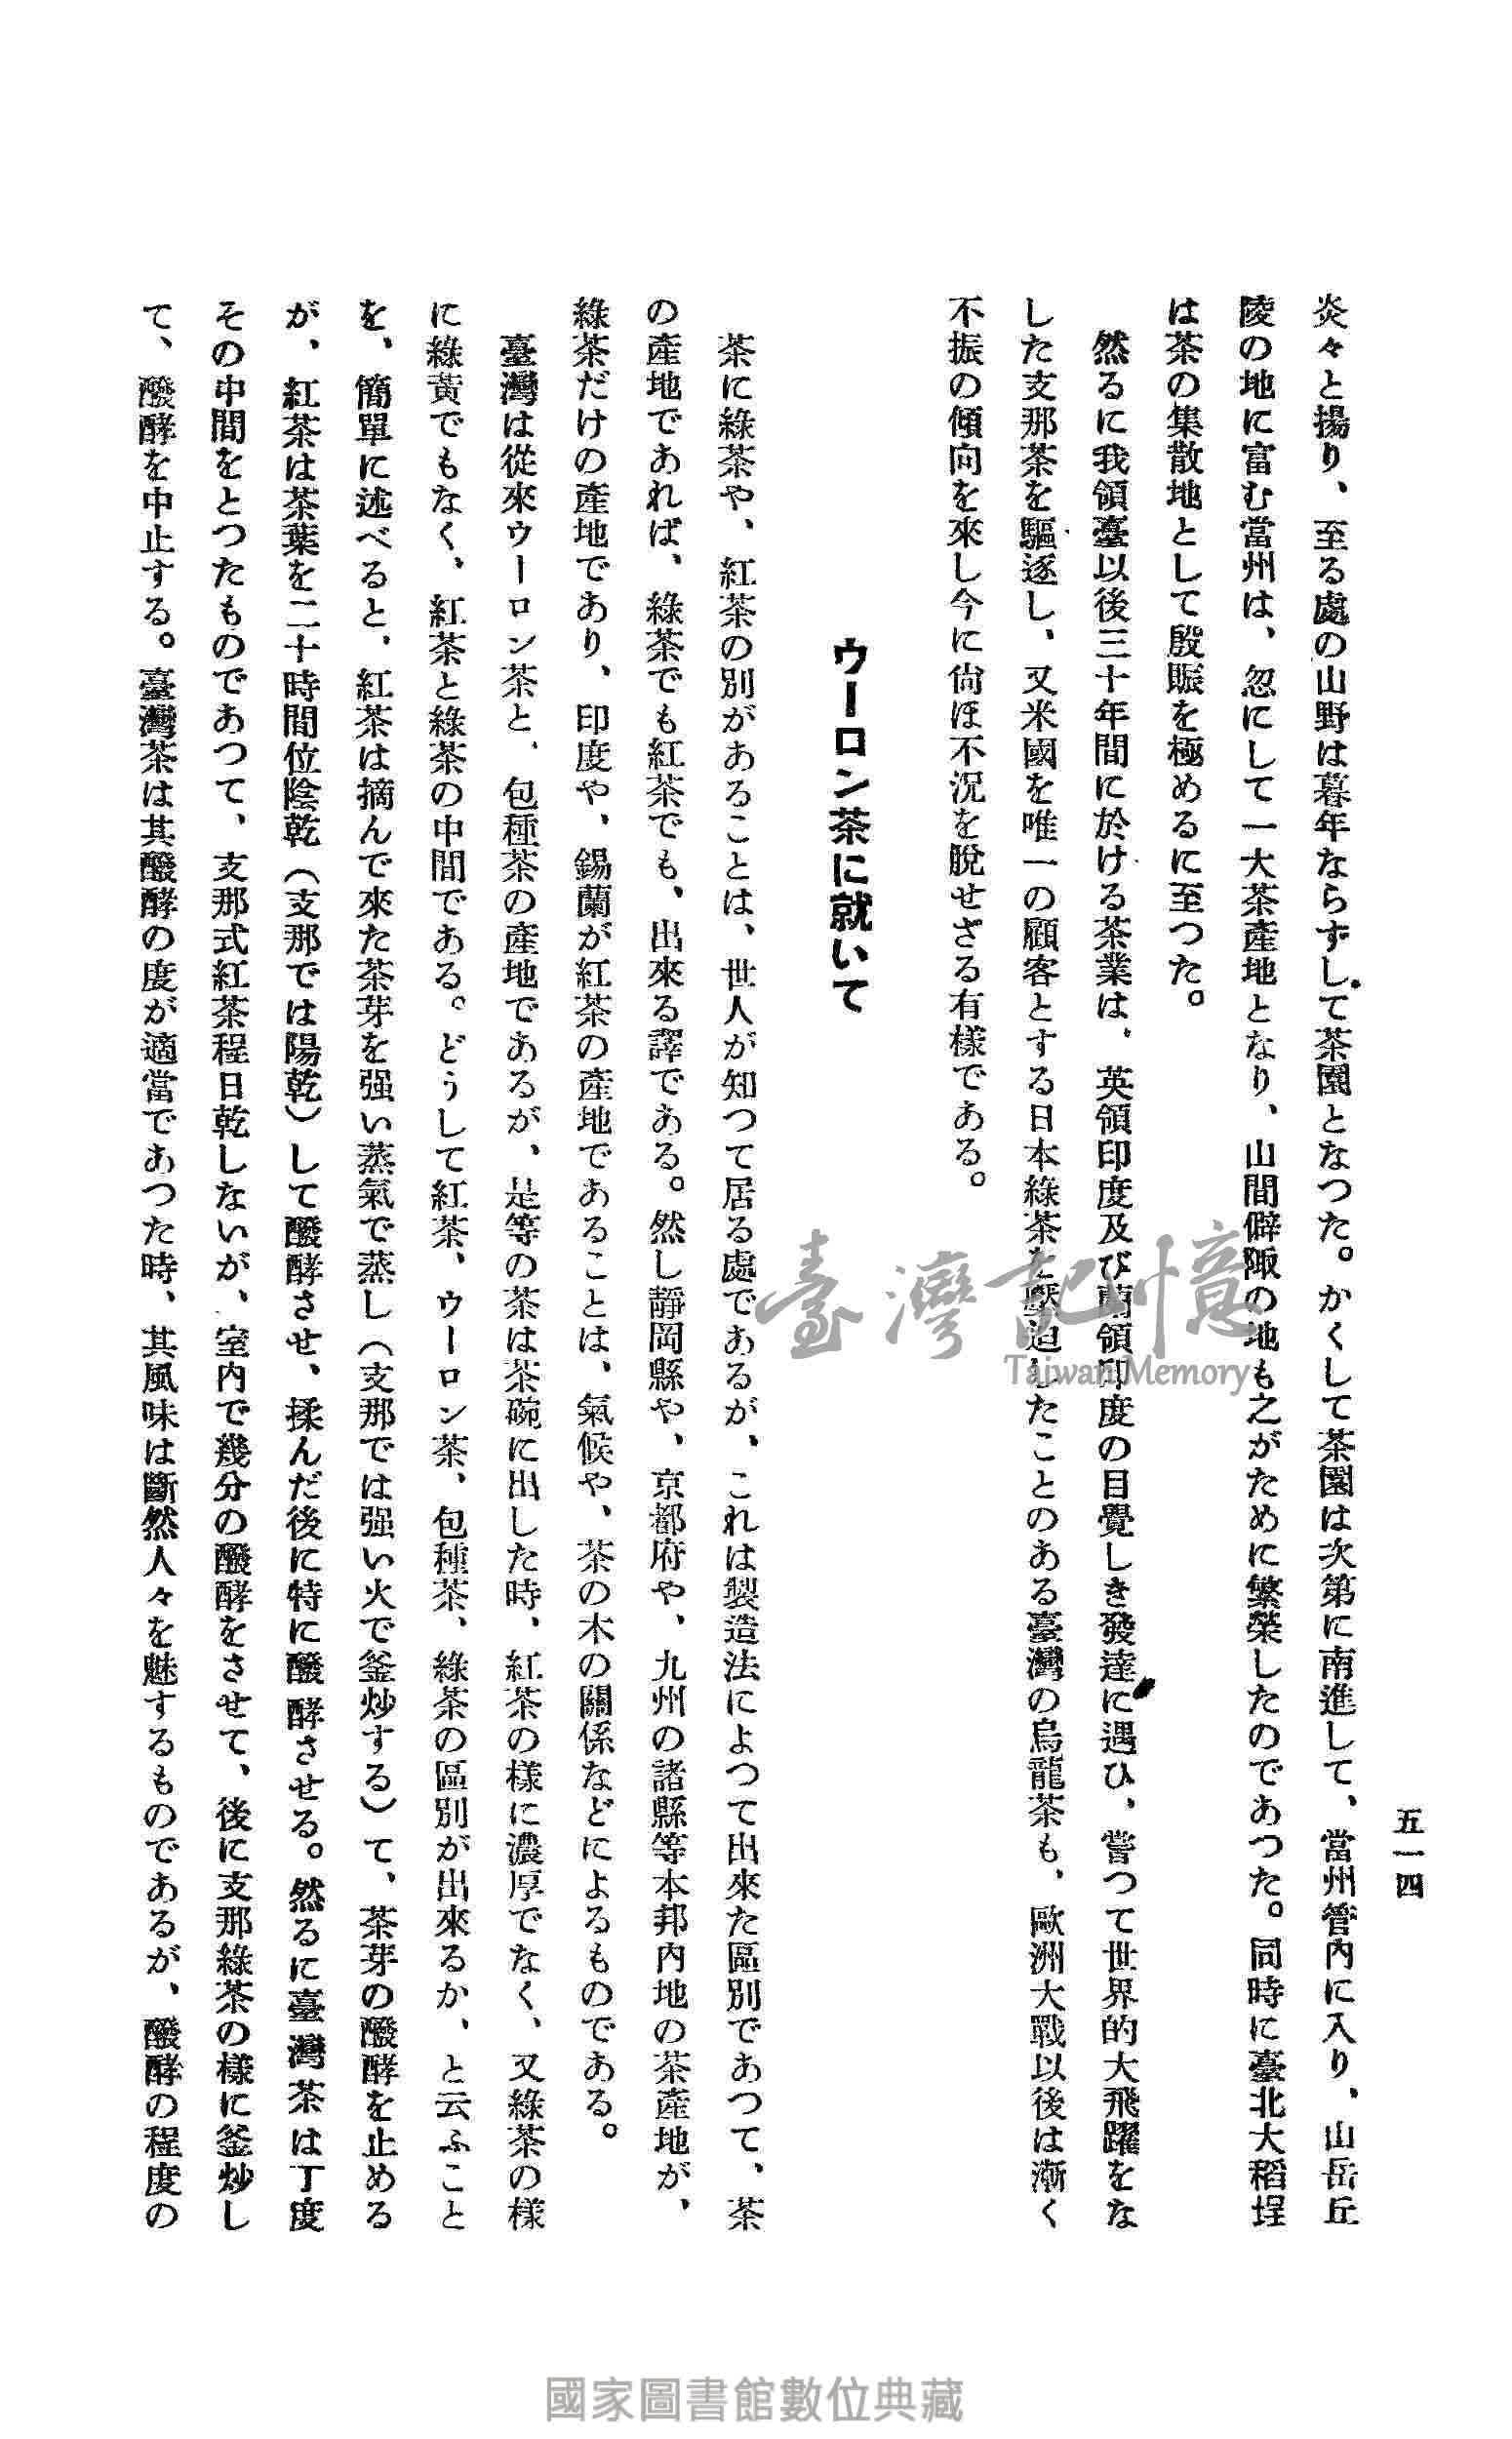 五一四
炎々と揚り、至る處の山野は暮年ならずして茶園となつた。かくして茶園は次第に南進して、當州管內に入り、山岳丘
陵の地に富む當州は、忽にして一大茶產地となり、山間僻陬の地も之がために繁榮したのであつた。同時に臺北大稻埕
は茶の集散地として殷賑を極めるに至つた。
然るに我領臺以後三十年間に於ける茶業は、英領印度及び蘭領印度の目覺しき發達に遇ひ、嘗つて世界的大飛躍をな
した支那茶を驅逐し、又米國を唯一の顧客とする日本綠茶を壓迫したことのある臺灣の烏龍茶も、歐洲大戰以後は漸く
不振の傾向を來し今に尙ほ不況を脫せざる有樣である。
ウーロン茶に就いて
茶に綠茶や、紅茶の別があることは、世人が知つて居る處であるが、これは製造法によつて出來た區別であつて、茶
の產地であれば、綠茶でも紅茶でも、出來る譯である。然し靜岡縣や、京都府や、九州の諸縣等本邦內地の茶產地が、
綠茶だけの產地であり、印度や、錫蘭が紅茶の產地であることは、氣候や、茶の木の關係などによるものである。
臺灣は從來ウーロン茶と、包種茶の產地であるが、是等の茶は茶碗に出した時、紅茶の樣に濃厚でなく、又綠茶の樣
に綠黃でもなく、紅茶と綠茶の中間である。どうして紅茶、ウーロン茶、包種茶、綠茶の區別が出來るか、と云ふこと
を、簡單に述べると、紅茶は摘んで來た茶芽を强い蒸氣で蒸し（支那では强い火で釜炒する）て、茶芽の醱酵を止める
が、紅茶は茶葉を二十時間位陰乾（支那では陽乾）して醱酵させ、揉んだ後に特に醱酵させる。然るに臺灣茶は丁度
その中間をとつたものであつて、支那式紅茶程日乾しないが、室內で幾分の醱酵をさせて、後に支那綠茶の樣に釜炒し
て、醱酵を中止する。臺灣茶は其醱酵の度が適當であつた時、其風味は斷然人々を魅するものであるが、醱酵の程度の
臺灣記憶
Taiwan Memory
國家圖書館數位典藏